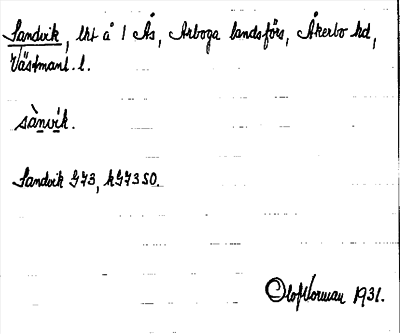 Sandvik, lht å 1 Ås, Arboga landsförs, Åkerbo hd,
Västmanl. l.
sànvìk.
Sandvik G73, kG73 SO.
Olof Norman 1931.